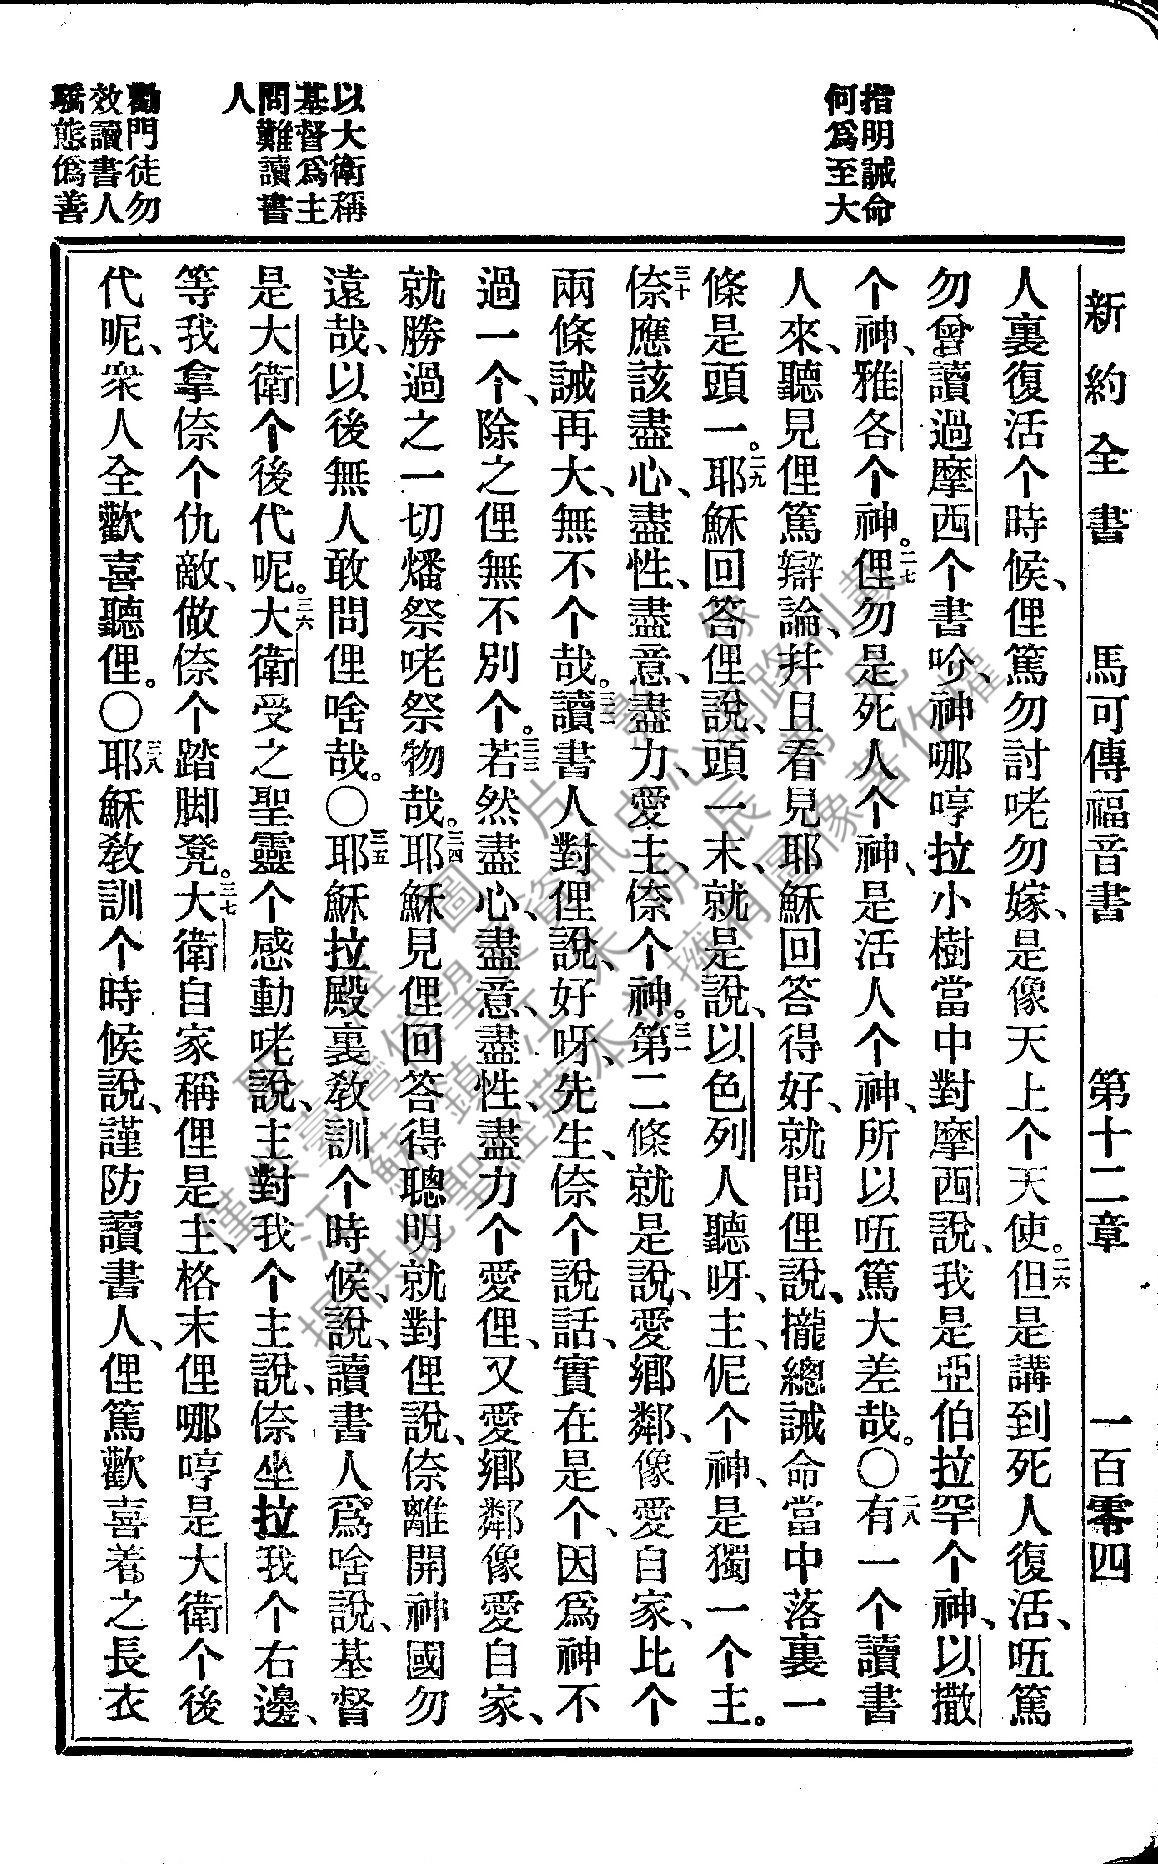 指明誡命
何爲至大
以大衛稱
基督爲主
問難讀書
人
勸門徒勿
效讀書人
驕態僞善
新約全書　馬可傳福音書　第十二章　一百零四
人裏復活个時候、俚篤勿討咾勿嫁、是像天上个天使。二六但是講到死人復活、㕶篤
勿曾讀過摩西个書吤、神哪哼拉小樹當中對摩西說、我是亞伯拉罕个神、以撒
个神、雅各个神。二七俚勿是死人个神、是活人个神、所以㕶篤大差哉。〇二八有一个讀書
人來、聽見俚篤辯論、幷且看見耶穌回答得好、就問俚說、攏總誡命當中落裏一
條是頭一。二九耶穌回答俚說、頭一末、就是說、以色列人聽呀、主、伲个神、是獨一个主。
三十倷應該盡心、盡性、盡意、盡力、愛主、倷个神。三一第二條就是說、愛鄉鄰、像愛自家、比个
兩條誡再大、無不个哉。三二讀書人對俚說、好呀、先生、倷个說話、實在是个、因爲神不
過一个、除之俚無不別个。三三若然盡心、盡意、盡性、盡力个愛俚、又愛鄉鄰像愛自家、
就勝過之一切燔祭咾祭物哉。三四耶穌見俚回答得聰明就對俚說、倷離開神國勿
遠哉、以後無人敢問俚啥哉。〇三五耶穌拉殿裏敎訓个時候、說、讀書人爲啥說、基督
是大衛个後代呢。三六大衛受之聖靈个感動咾說、主對我个主說、倷坐拉我个右邊、
等我拿倷个仇敵、做倷个踏脚凳。三七大衛自家稱俚是主、格末俚哪哼是大衛个後
代呢、衆人全歡喜聽俚。〇三八耶穌敎訓个時候說、謹防讀書人、俚篤歡喜着之長衣